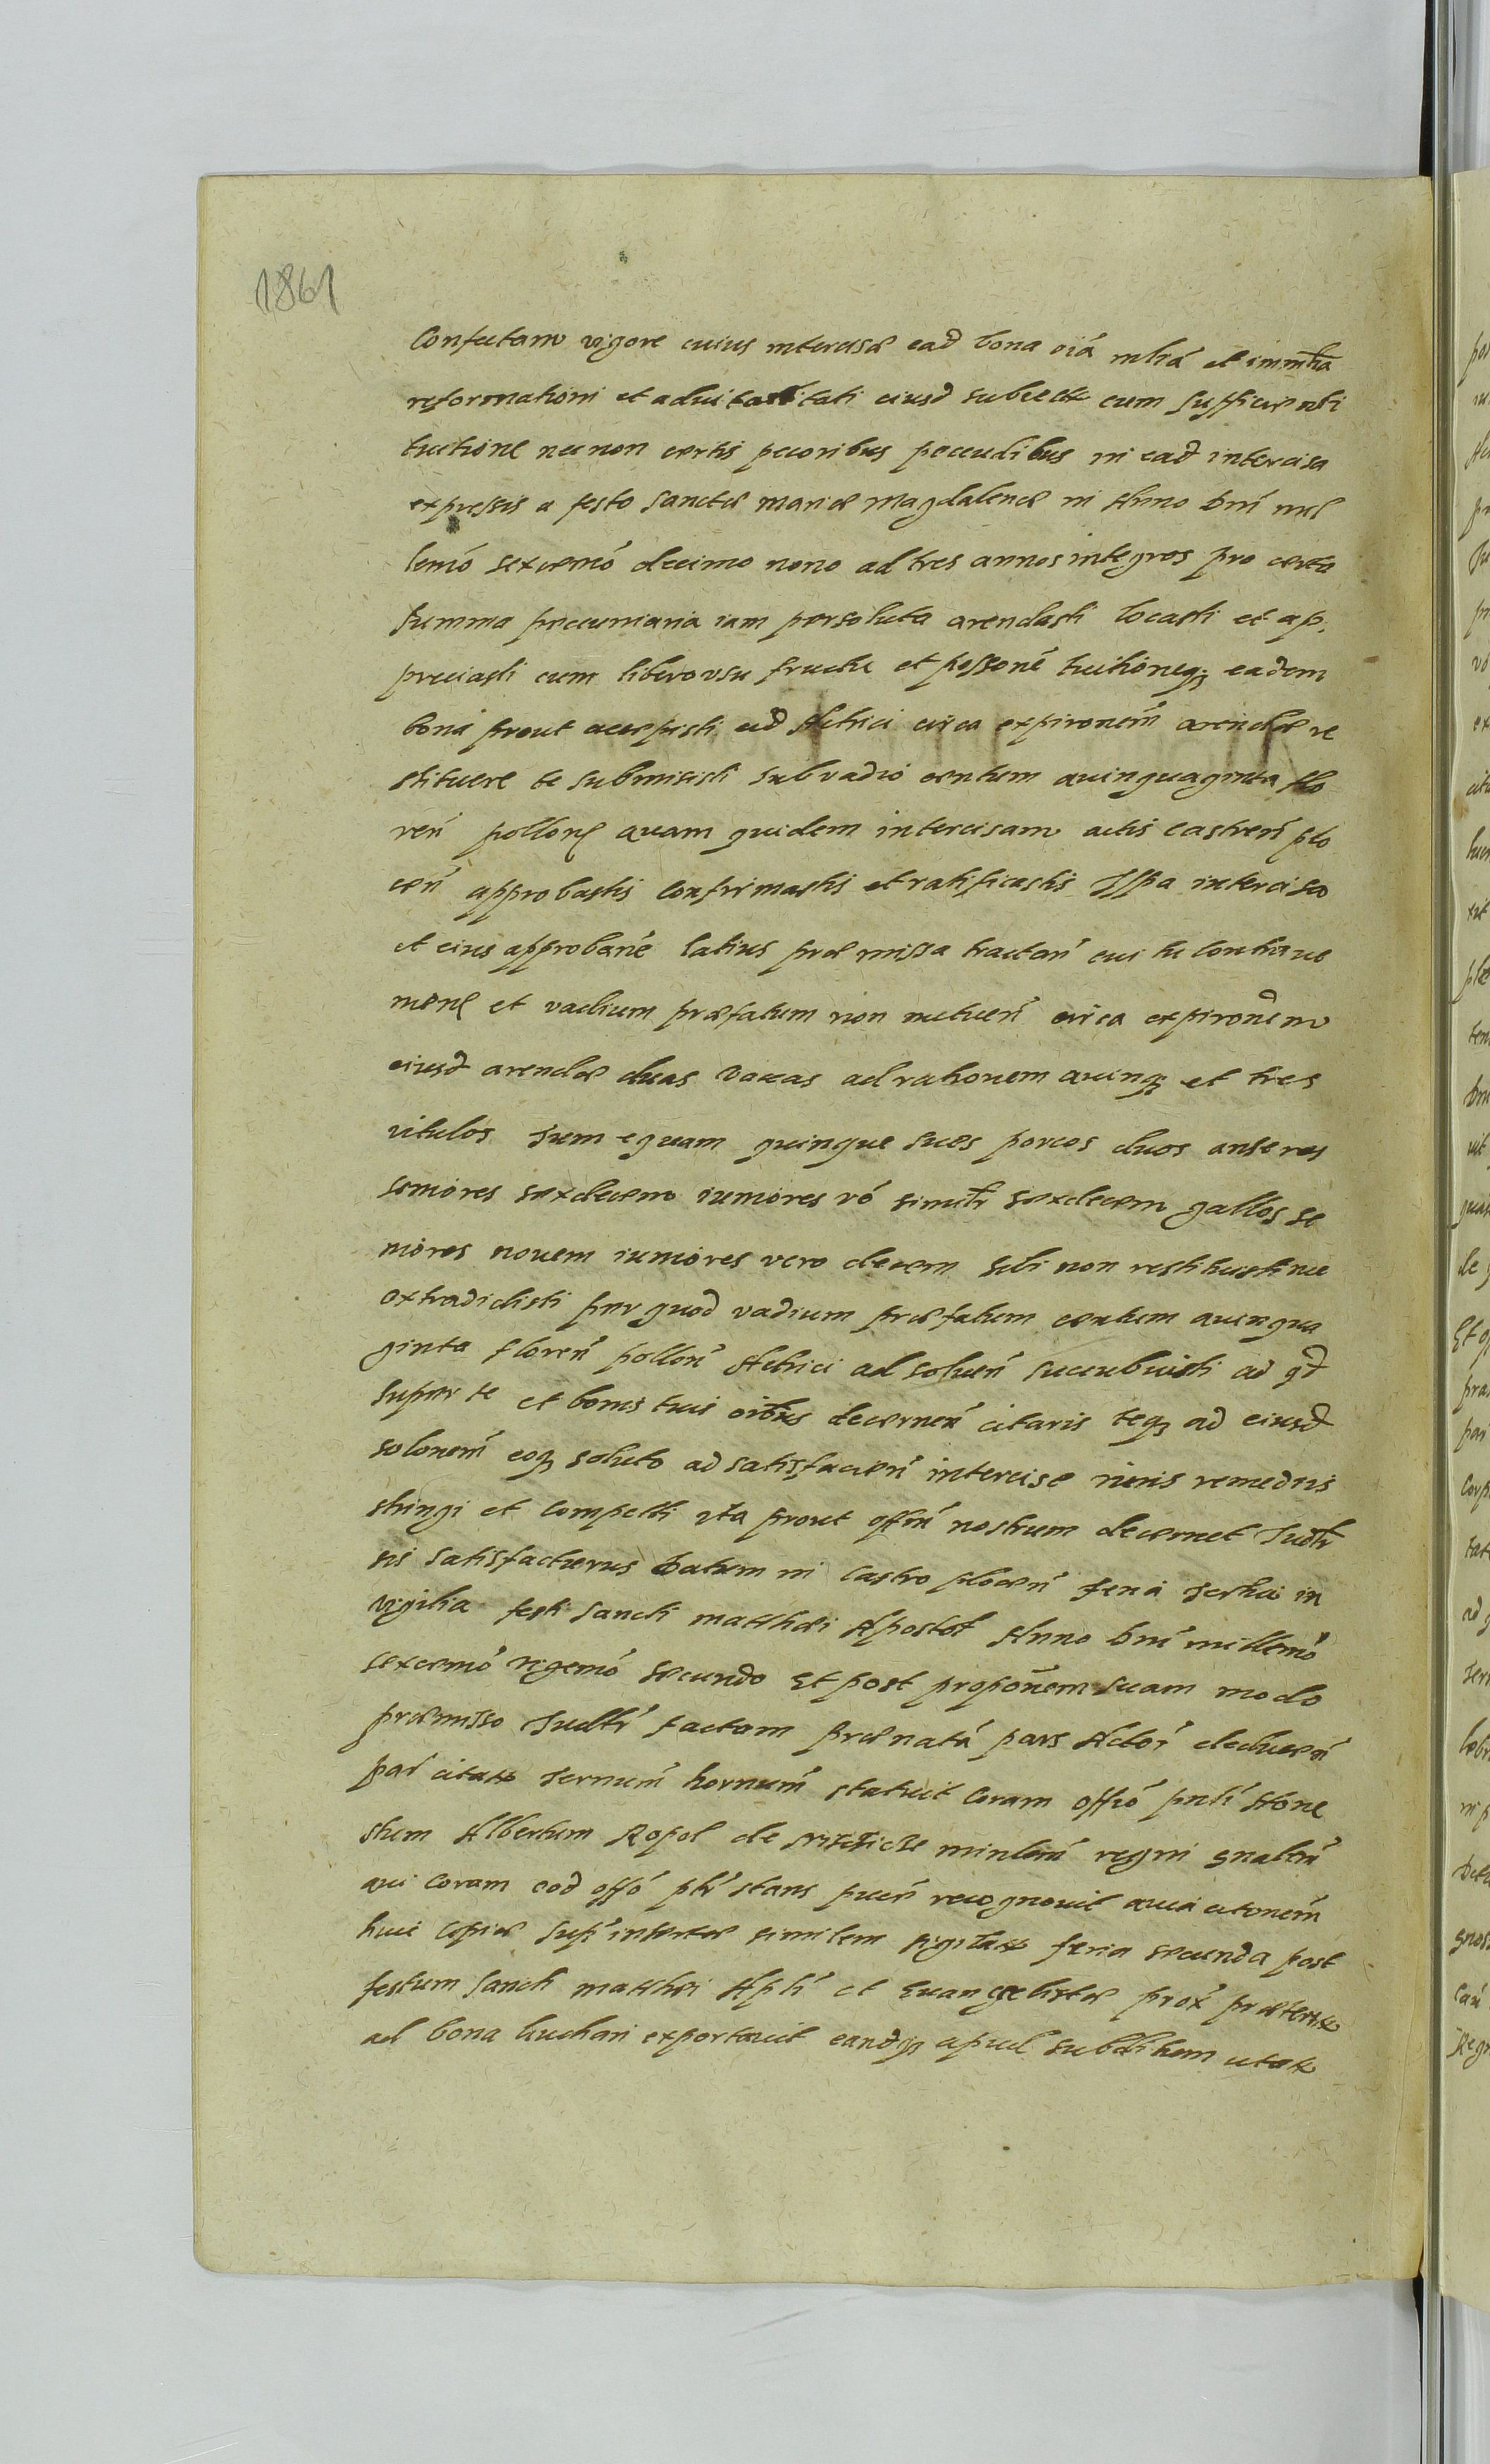 1861
Confectam vigore cuius intercisæ ead bona oiá mliá et immlia
reformationi et advitalitati eiusd subiecta cum sufficienti
tuitione necnon certis pecoribus pecudibus in ead intercisa
expressis a festo sanctæ mariæ Magdalenæ in Anno Dni mil
lemó sexcemó decimo nono ad tres annos integros pro certa
summa pecuniaria iam persoluta arendasti locasti et ap,
preciasti cum libero usu fructu et possoné tuitioneq; eadem
bona prout accepisti ad Actrici circa expironém arendæ re
stituere te submisisti sub vadio centum quinquaginta flo
ren pollon quam quidem intercisam actis castren plo
cen approbastis confirmastis et ratificastis Ipsa intercisa
et eius approbane latius præmissa tractan cui tu contrave
nien et vadium præfatum non metuen circa expironem
eiusd arendæ duas vacas ad rationem quinq; et tres
vitulos Item equam quinque sues porcos duos anseres
seniores sexdecem iuniores vó similr sexdecem gallos se
niores novem iuniores vero decem sibi non restituisti nec
extradidisti per quod vadium præfatum centum quinqua
ginta floren pollon Actrici ad solven succubuisti ad qd
super te et bonis tuis oibus decernen citaris teq; ad eiusd
solonem eoq; soluto ad satisfacien intercise iuris remediis
stringi et compelli ita prout offm nostrum decernet Iudlr
sis satisfacturus Datum in castro plocen feria Tertia in
vigilia festi sancti matthæi Apostol Anno Dni millemó
sexcemó vigemó secundo Et post proponem suam modo
præmisso Iudlr factam prænatá pars Actor deducen
par citatæ Termum hornum statuit coram offió pnlí Hone
stum Albertum Ropol de minlem regni gnalem
qui coram eod offó plr stans puen recognovit quia citonem
huic copiæ sup insertæ similem sigilatæ feria secunda post
festum sancti matthæi Apli et Evangelistæ prox præteritæ
ad bona exportavit eandq; apud subditum citatæ